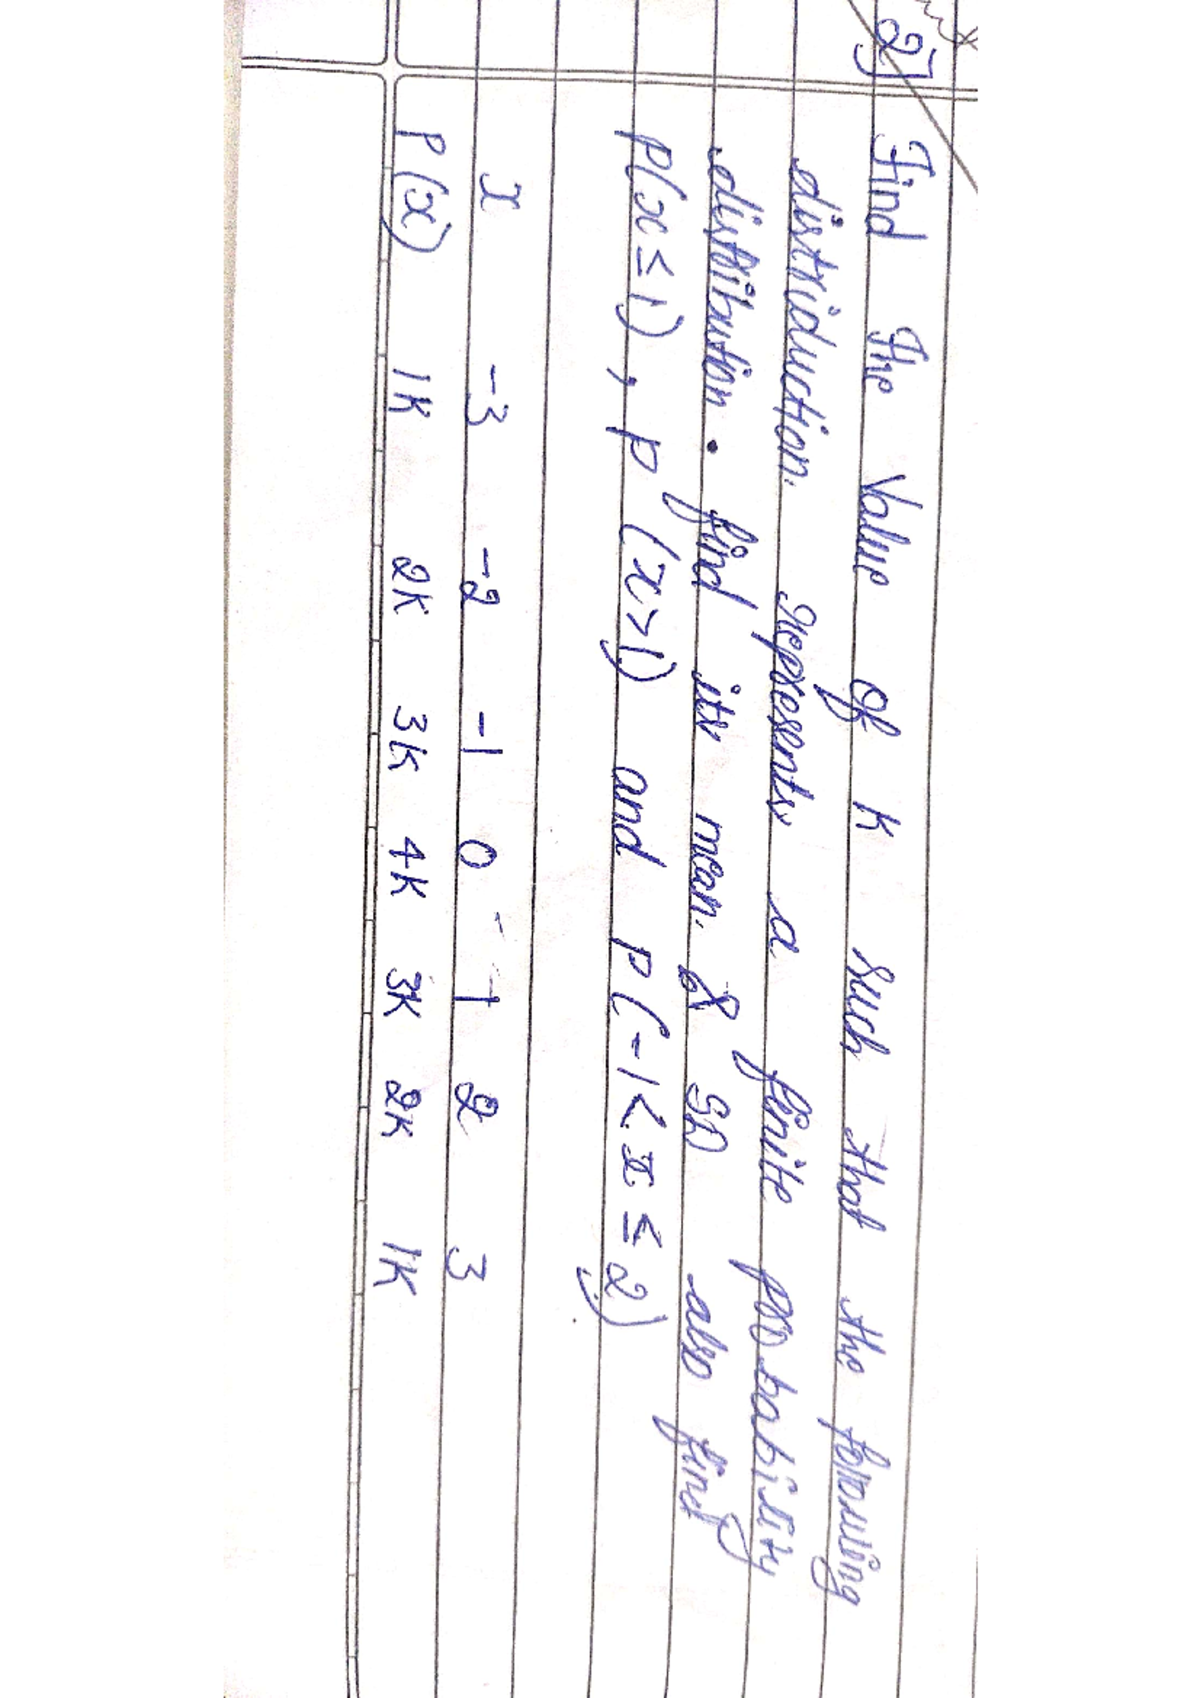 2] Find The Value of K such that the following
distriduction. represents a finite probability
distribution. find its mean & SD also find
P(x ≤ 1), P (x > 1) and P(-1 < x ≤ 2)
x -3 -2 -1 0 1 2 3
P(x) 1K 2K 3K 4K 3K 2K 1K